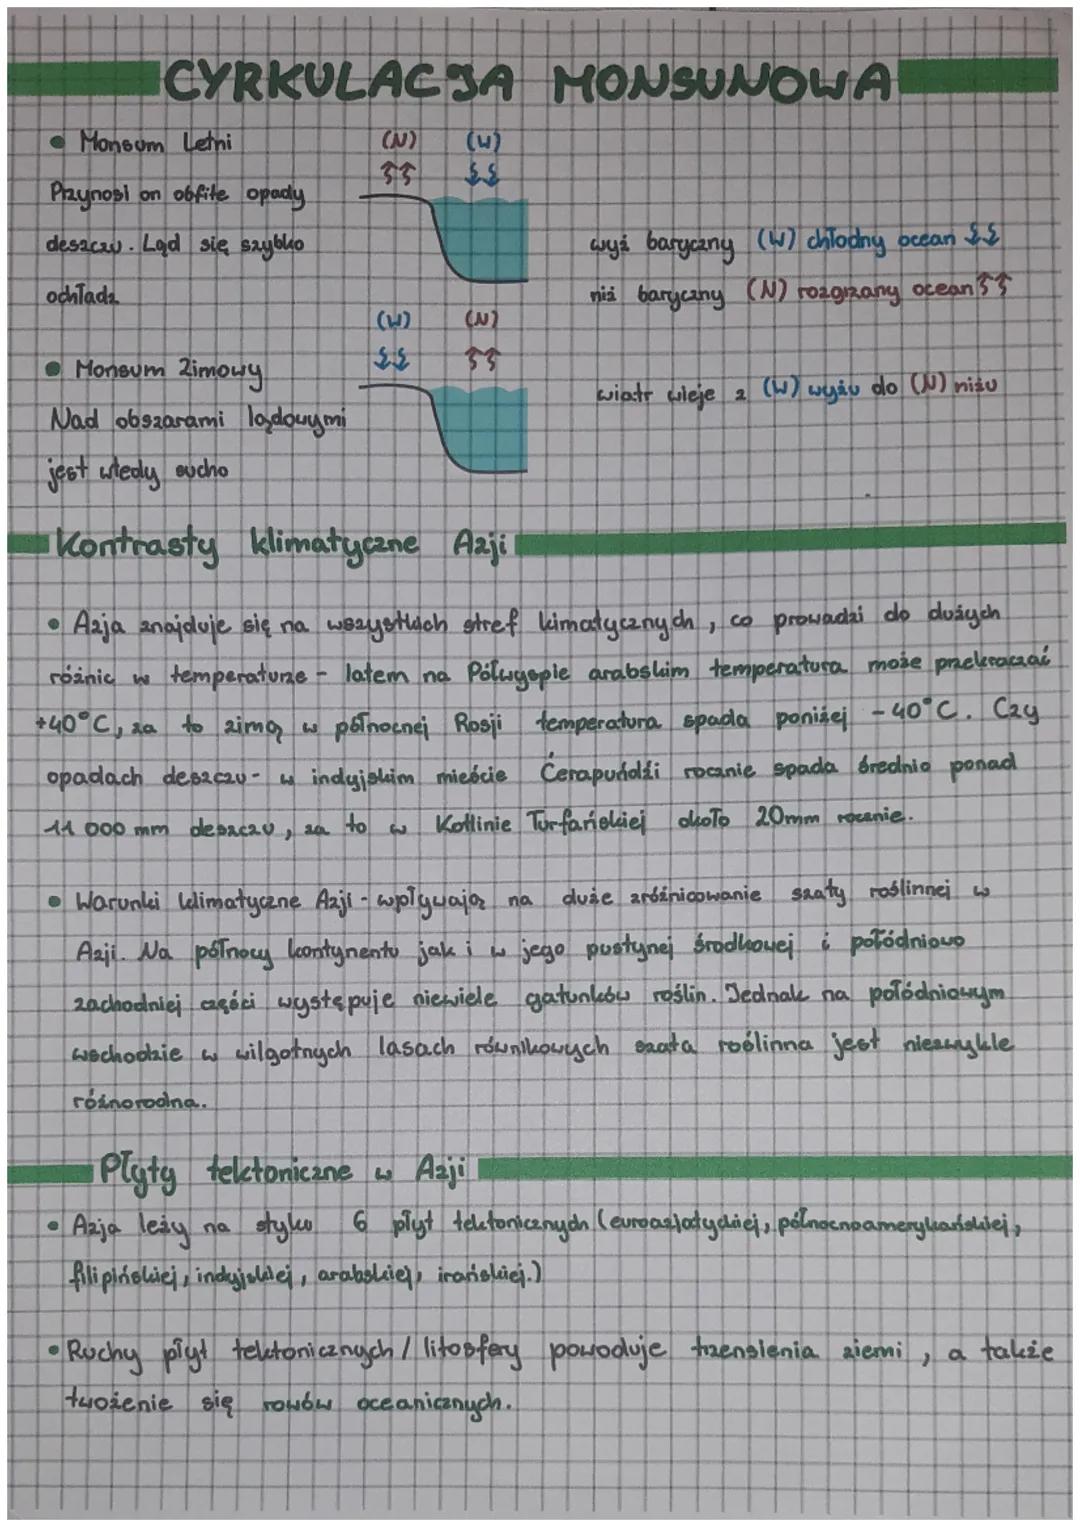 CYRKULACJA MONSUNOWA
• Monsum Letni
(N) (W)
Przynosi on obfite opady
deszczu. Ląd się szybko
ochładz
wyż baryczny (W) chłodny ocean
niż baryczny (N) rozgrzany ocean
(W) (N)
• Monsum Zimowy
wiatr wieje z (W) wyżu do (N) niżu
Nad obszarami lądowymi
jest wtedy sucho
Kontrasty klimatyczne Azji
• Azja znajduje się na wszystkich stref kimatycznych, co prowadzi do dużych
różnic w temperaturze - latem na Półwyspie arabskim temperatura może przekraczać
+40°C, za to zimą w północnej Rosji temperatura spada poniżej -40°C. Czy
opadach deszczu - w indyjskim mieście Ćerapuńdźi rocznie spada średnio ponad
11 000 mm deszczu, za to w Kotlinie Turfańskiej około 20mm rocznie.
• Warunki klimatyczne Azji - wpływają na duże zróżnicowanie szaty roślinnej w
Azji. Na północy kontynentu jak i w jego pustynej środkowej i połódniowo
zachodniej części występuje niewiele gatunków roślin. Jednak na połódniowym
wschodzie w wilgotnych lasach równikowych szata roślinna jest niezwykle
różnorodna.
Płyty tektoniczne w Azji
• Azja leży na styku 6 płyt tektonicznych (euroazjatyckiej, północnoamerykańskiej,
filipińskiej, indyjskiej, arabskiej, irańskiej.)
• Ruchy płyt tektonicznych / litosfery powoduje trzensienia ziemi, a także
twożenie się rowów oceanicznych.